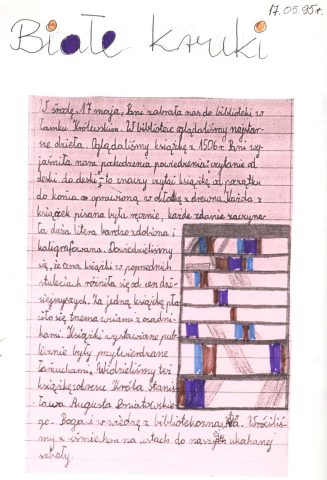 17.05.95r.
Białe kruki
W środę, 17 maja, Pani zabrała nas do biblioteki w
Zamku Królewskim. W bibliotece oglądaliśmy najstar-
sze dzieła. Oglądaliśmy książkę z 1506r. Pani wy-
jaśniła nam pochodzenie powiedzenia: czytanie od
deski do deski, to znaczy czytać książkę od początku
do końca oprawioną w okładkę z drewna. Każda z
książek pisana była ręcznie, każde zdanie zaczyna-
ła duża litera bardzo zdobiona i
kaligrafowana. Dowiedzieliśmy
się, że cena książki w poprzednich
stuleciach różniła się od cen dzi-
siejszych. Za jedną książkę pła-
ciło się trzema wsiami z osadni-
kami. Książki wystawiane pub-
licznie były przytwierdzane
łańcuchami. Widzieliśmy też
książkę okresu Króla Stanis-
ława Augusta Poniatowskie-
go. Bogate w wiedzę z bibliotekoznawstwa. Wróciliś-
my z uśmiechem na ustach do naszej ukochanej
szkoły.